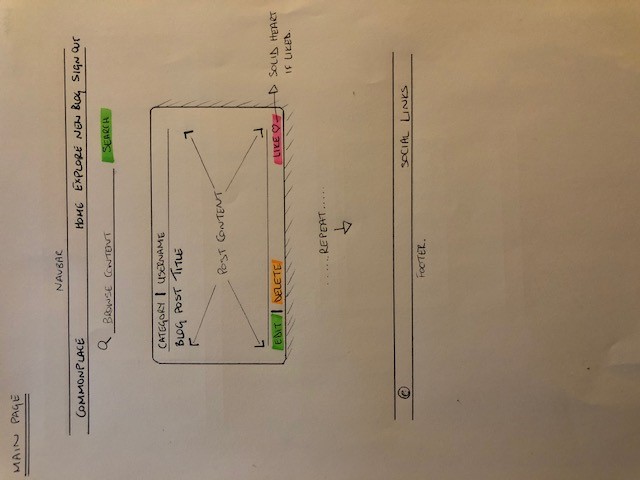 MAIN PAGE
NAVBAR
COMMONPLACE HOME EXPLORE NEW BLOG SIGN OUT
BROWSE CONTENT SEARCH
CATEGORY | USERNAME
BLOG POST TITLE
POST CONTENT
EDIT | DELETE LIKE ♡ → SOLID HEART
IF LIKED.
......REPEAT.....
© SOCIAL LINKS
FOOTER.